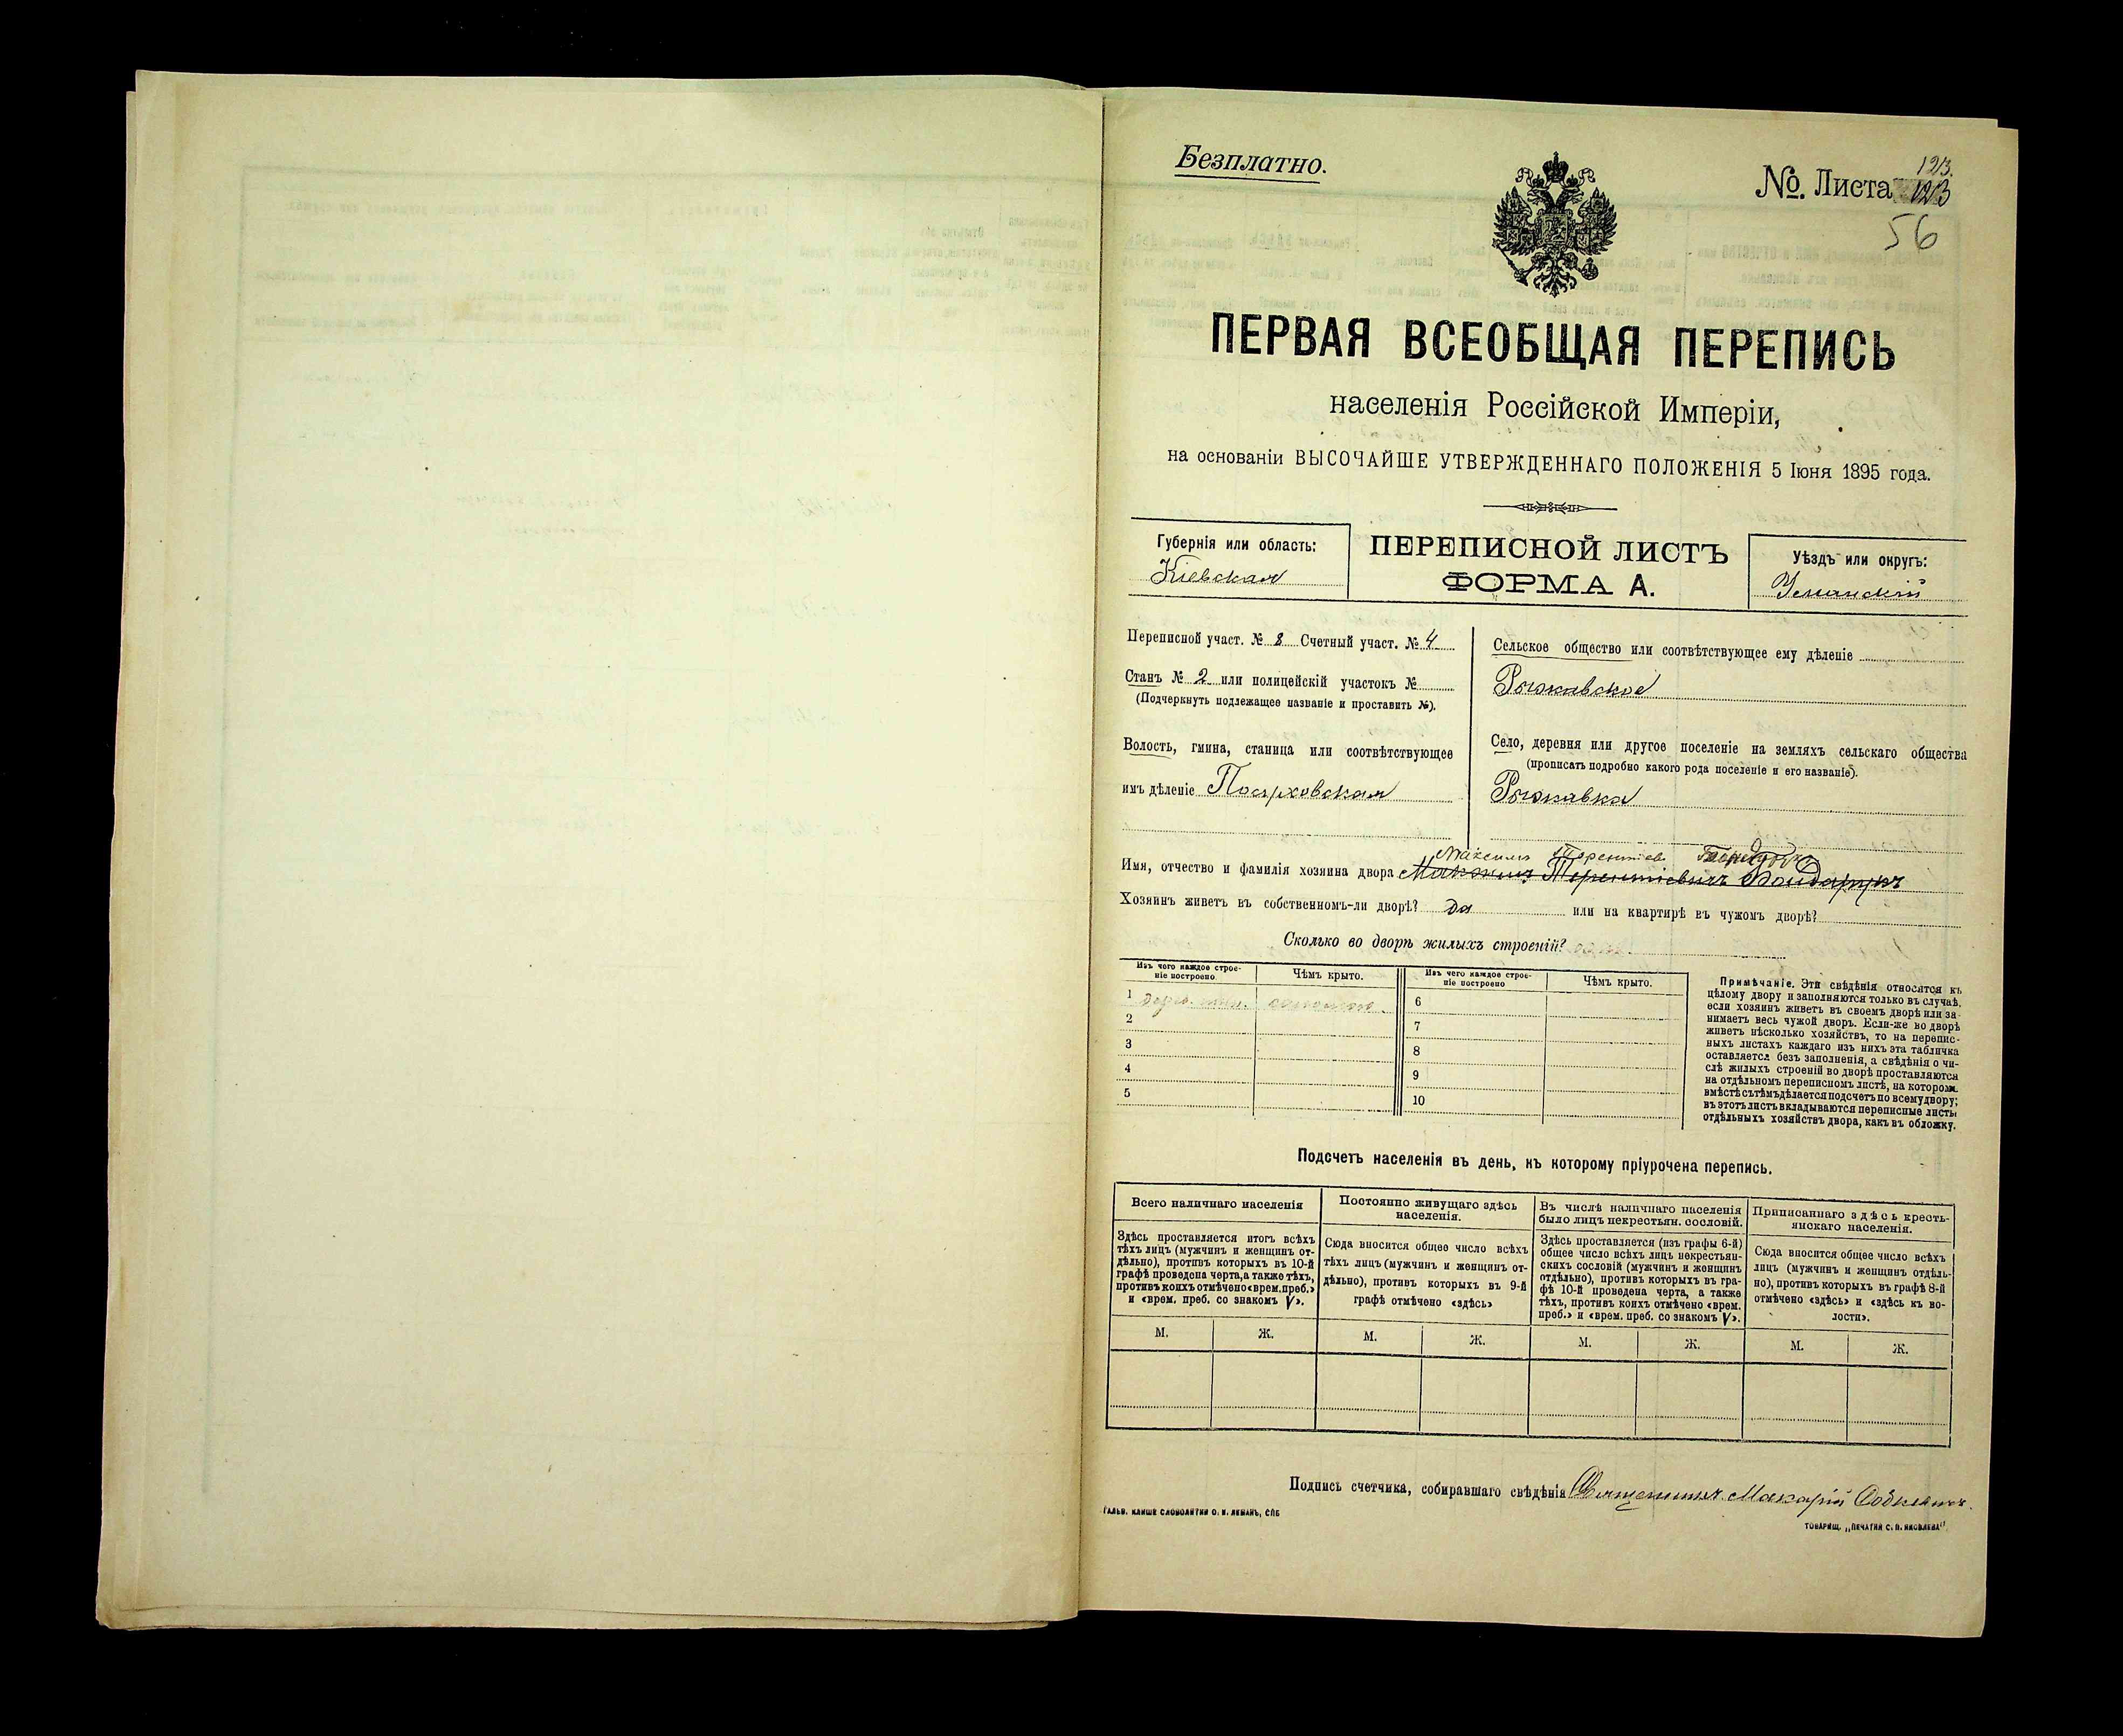 Безплатно.
№. Листа 123.
123
56
ПЕРВАЯ ВСЕОБЩАЯ ПЕРЕПИСЬ
населенія Россійской Имперіи,
на основаніи ВЫСОЧАЙШЕ УТВЕРЖДЕННАГО ПОЛОЖЕНІЯ 5 Іюня 1895 года.
Губернія или область:
Кіевская
ПЕРЕПИСНОЙ ЛИСТЪ
ФОРМА А.
Уѣздъ или округъ:
Уманскій
Переписной участ. № 8 Счетный участ. № 4
Станъ № 2 или полицейскій участокъ №
(Подчеркнуть подлежащее названіе и проставить №).
Волость, гмина, станица или соотвѣтствующее
имъ дѣленіе
Сельское общество или соотвѣтствующее ему дѣленіе
Рыжавское
Село, деревня или другое поселеніе на земляхъ сельскаго общества
(прописать подробно какого рода поселеніе и его названіе).
Рыжавка
Максимъ Терентіев
Имя, отчество и фамилія хозяина двора Максимъ Терентіевичъ Бондарукъ
Хозяинъ живетъ въ собственномъ-ли дворѣ? да или на квартирѣ въ чужомъ дворѣ?
Сколько во дворѣ жилыхъ строеній?
Изъ чего каждое строе-
ніе построено
Чѣмъ крыто.
Изъ чего каждое строе-
ніе построено
Чѣмъ крыто.
1
2
3
4
5
6
7
8
9
10
Примѣчаніе. Эти свѣдѣнія относятся къ
цѣлому двору и заполняются только въ случаѣ,
если хозяинъ живетъ въ своемъ дворѣ или за-
нимаетъ весь чужой дворъ. Если-же во дворѣ
живетъ нѣсколько хозяйствъ, то на перепис-
ныхъ листахъ каждаго изъ нихъ эта табличка
оставляется безъ заполненія, а свѣдѣнія о чи-
слѣ жилыхъ строеній во дворѣ проставляются
на отдѣльномъ переписномъ листѣ, на которомъ
вмѣстѣ съ тѣмъ дѣлается подсчетъ по всему двору;
въ этотъ листъ вкладываются переписные листы
отдѣльныхъ хозяйствъ двора, какъ въ обложку.
Подсчетъ населенія въ день, къ которому пріурочена перепись.
Всего наличнаго населенія
Здѣсь проставляется итогъ всѣхъ
тѣхъ лицъ (мужчинъ и женщинъ от-
дѣльно), противъ которыхъ въ 10-й
графѣ проведена черта, а также тѣхъ,
противъ коихъ отмѣчено «врем. преб.»
и «врем. преб. со знакомъ V».
Постоянно живущаго здѣсь
населенія.
Сюда вносится общее число всѣхъ
тѣхъ лицъ (мужчинъ и женщинъ от-
дѣльно), противъ которыхъ въ 9-й
графѣ отмѣчено «здѣсь»
Въ числѣ наличнаго населенія
было лицъ некрестьян. сословій.
Здѣсь проставляется (изъ графы 6-й)
общее число всѣхъ лицъ некрестьян-
скихъ сословій (мужчинъ и женщинъ
отдѣльно), противъ которыхъ въ гра-
фѣ 10-й проведена черта, а также
тѣхъ, противъ коихъ отмѣчено «врем.
преб.» и «врем. преб. со знакомъ V».
Приписаннаго здѣсь кресть-
янскаго населенія.
Сюда вносится общее число всѣхъ
лицъ (мужчинъ и женщинъ отдѣль-
но), противъ которыхъ въ графѣ 8-й
отмѣчено «здѣсь» и «здѣсь къ во-
лости».
М. Ж. М. Ж. М. Ж. М. Ж.
Подпись счетчика, собиравшаго свѣдѣнія Священникъ Макарій
ГАЛЬВ. КЛИШЕ СЛОВОЛИТНИ О. И. ЛЕМАНЪ, СПБ
ТОВАРИЩ. „ПЕЧАТНЯ С. П. ЯКОВЛЕВА"